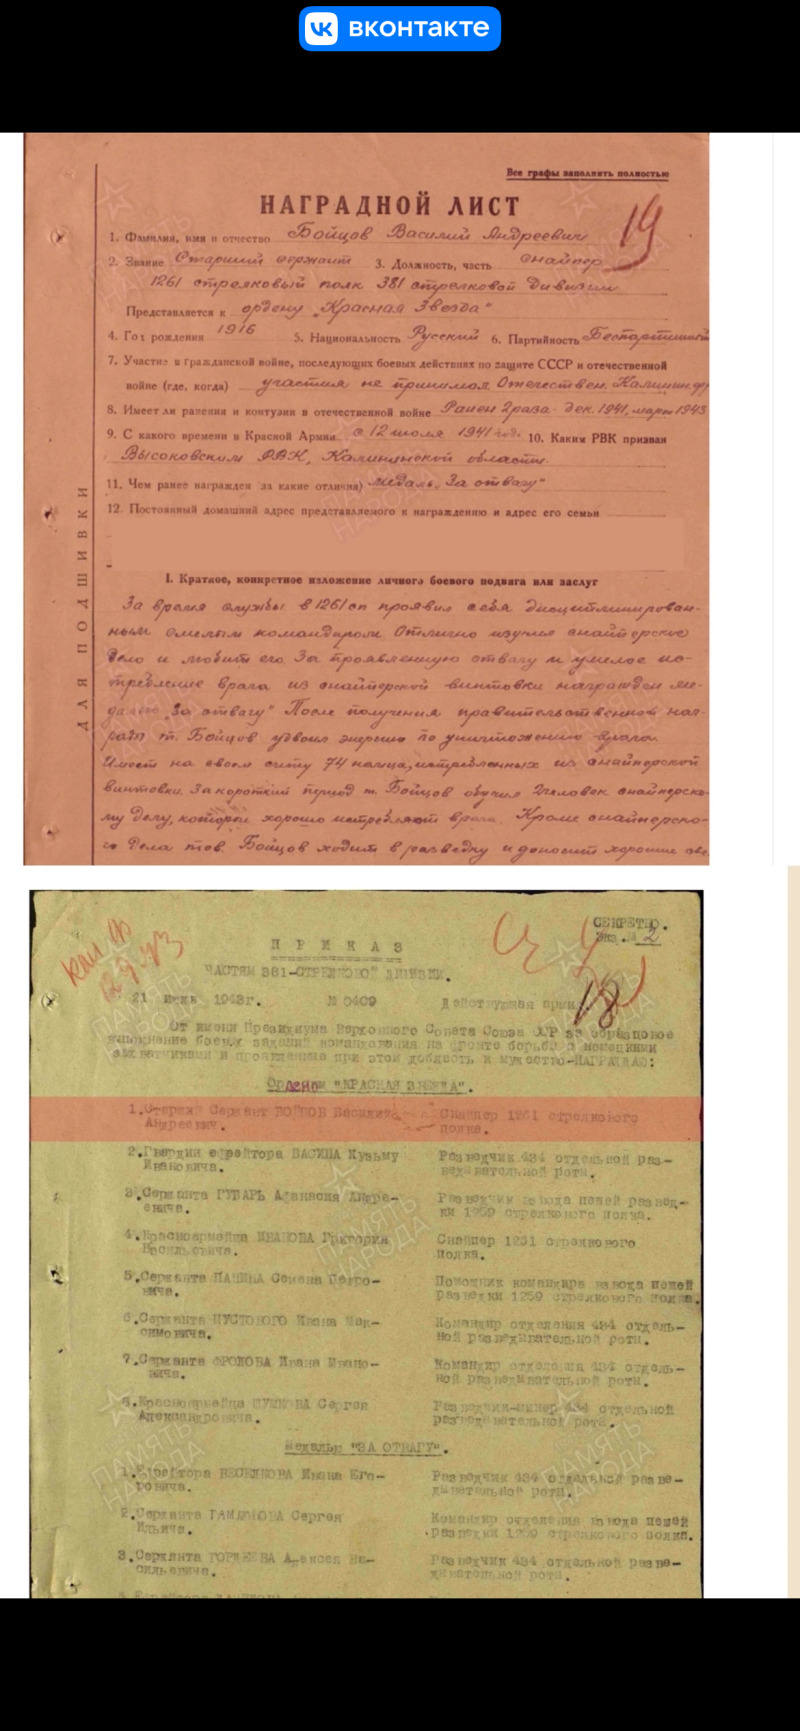 вконтакте
Все графы заполнить полностью
НАГРАДНОЙ ЛИСТ
19
1. Фамилия, имя и отчество Бойцов Василий Андреевич
2. Звание Старший сержант 3. Должность, часть снайпер
1261 стрелковый полк 381 стрелковой дивизии
Представляется к ордену „Красная Звезда"
4. Год рождения 1916 5. Национальность Русский 6. Партийность Беспартийный
7. Участие в гражданской войне, последующих боевых действиях по защите СССР и отечественной
войне (где, когда) участия не принимал. Отечествен. Калинин. фр
8. Имеет ли ранения и контузии в отечественной войне Ранен 2 раза - дек. 1941, март 1943
9. С какого времени в Красной Армии с 12 июля 1941 год. 10. Каким РВК призван
Высоковским РВК, Калининской области.
11. Чем ранее награжден (за какие отличия) медаль „За отвагу"
12. Постоянный домашний адрес представляемого к награждению и адрес его семьи
ДЛЯ ПОДШИВКИ
I. Краткое, конкретное изложение личного боевого подвига или заслуг
За время службы в 1261 сп проявил себя дисциплинирован-
ным смелым командиром. Отлично изучил снайперское
дело и любит его. За проявленную отвагу и умелое ис-
требление врага из снайперской винтовки награжден ме-
далью „За отвагу" После получения правительственной наг-
рады т. Бойцов удвоил энергию по уничтожению врага.
Имеет на своем счету 74 немца, истребленных из снайперской
винтовки. За короткий период т. Бойцов обучил 2 человек снайперско-
му делу, которые хорошо истребляют врага. Кроме снайперско-
го дела тов. Бойцов ходит в разведку и доносит хорошие све
СЕКРЕТНО.
Экз. № 2
ПРИКАЗ
ЧАСТЯМ 381-СТРЕЛКОВОЙ ДИВИЗИИ.
18
21 1943г. № 0409 Действующая армия
От имени Президиума Верховного Совета Союза ССР за образцовое
выполнение боевых заданий командования на фронте борьбы с немецкими
захватчиками и проявленные при этом доблесть и мужество-НАГРАЖДАЮ:
Орденом "КРАСНАЯ ЗВЕЗДА".
1. Старший Сержант БОЙЦОВ Василий Снайпер 1261 стрелкового
Андреевич. полка.
2. Гвардии ефрейтора ВАСИНА Кузьму Разведчик 434 отдельной раз-
Ивановича. ведывательной роты.
3. Сержанта ГУБАРЬ Афанасия Андре- Разведчик взвода пешей развед-
евича. ки 1259 стрелкового полка.
4. Красноармейца ИВАНОВА Григория Снайпер 1261 стрелкового
Васильевича. полка.
5. Сержанта ПАНИНА Семена Петро- Помощник командира взвода пешей
вича. разведки 1259 стрелкового полка.
6. Сержанта ПУСТОВОГО Ивана Мак- Командир отделения 434 отдель-
симовича. ной разведывательной роты.
7. Сержанта ФРОЛОВА Ивана Ивано- Командир отделения 434 отдель-
вича. ной разведывательной роты.
8. Красноармейца Сергея Разведчик-минер 434 отдельной
Александровича. разведывательной роты.
Медалью "ЗА ОТВАГУ".
1. Ефрейтора ВЕСЕЛКОВА Ивана Его- Разведчик 434 отдельной разве-
ровича. дывательной роты.
2. Сержанта Сергея Командир отделения взвода пешей
Ильича. разведки 1259 стрелкового полка.
3. Сержанта ГОРДЕЕВА Алексея Ва- Разведчик 434 отдельной разве-
сильевича. дывательной роты.
ПАМЯТЬ НАРОДА